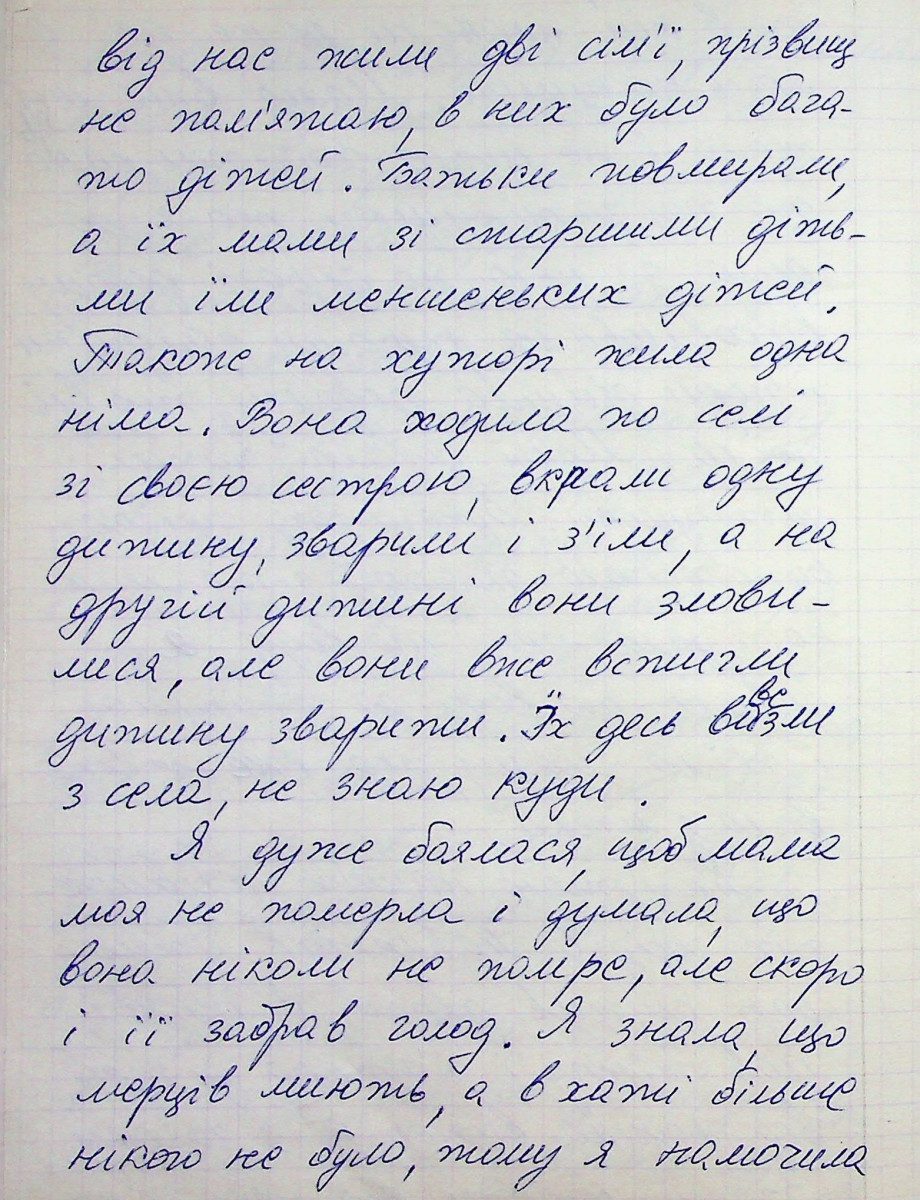 від нас жили дві сім'ї, прізвищ
не пам'ятаю, в них було бага-
то дітей. Батьки повмирали,
а їх мами зі старшими діть-
ми їли меншеньких дітей.
Також на хуторі жила одна
німа. Вона ходила по селі
зі своєю сестрою, вкрали одну
дитину, зварили і з'їли, а на
другій дитині вони злови-
лися, але вони вже встигли
дитину зварити. Їх десь вивезли
з села, не знаю куди.
Я дуже боялася, щоб мама
моя не померла і думала, що
вона ніколи не помре, але скоро
і її забрав голод. Я знала, що
мерців миють, а в хаті більше
нікого не було, тому я намочила